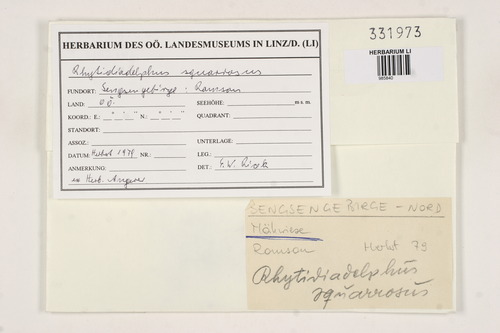 331973
HERBARIUM LI
HERBARIUM DES OÖ. LANDESMUSEUMS IN LINZ/D. (LI)
Rhytidiadelphus squarrosus
FUNDORT: Sengsengebirge : Ramsau
LAND: O.Ö. SEEHÖHE: m s. m.
KOORD. E.: ° ' " N.: ° ' " QUADRANT:
STANDORT:
ASSOZ.: UNTERLAGE:
DATUM: Herbst 1979 NR.: LEG.:
ANMERKUNG: DET.:
ex Herb.
SENGSENGEBIRGE - NORD
Ramsau Herbst 79
Rhytidiadelphus
squarrosus